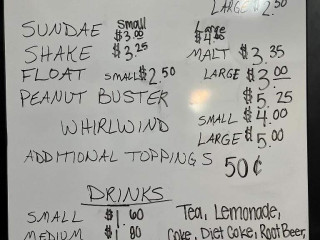 LARGE $2.50
SUNDAE Small $3.00 Large
SHAKE $3.25 MALT $3.35
FLOAT SMALL $2.50 LARGE $3.00
PEANUT BUSTER $5.25
WHIRLWIND SMALL $4.00
LARGE $5.00
ADDITIONAL TOPPINGS 50¢
DRINKS
SMALL $1.60 Tea, Lemonade,
MEDIUM $1.80 Coke, Diet Coke, Root Beer,